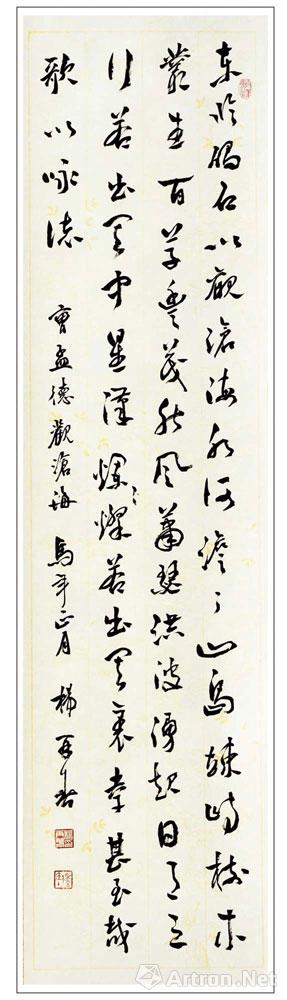 東臨碣石以觀滄海水何澹〻山島竦峙樹木
叢生百草豐茂秋風蕭瑟洪波湧起日月之
行若出其中星漢爛燦若出其裏幸甚至哉
歌以咏誌 曹孟德觀滄海 馬年正月 楊再春
Artron.Net